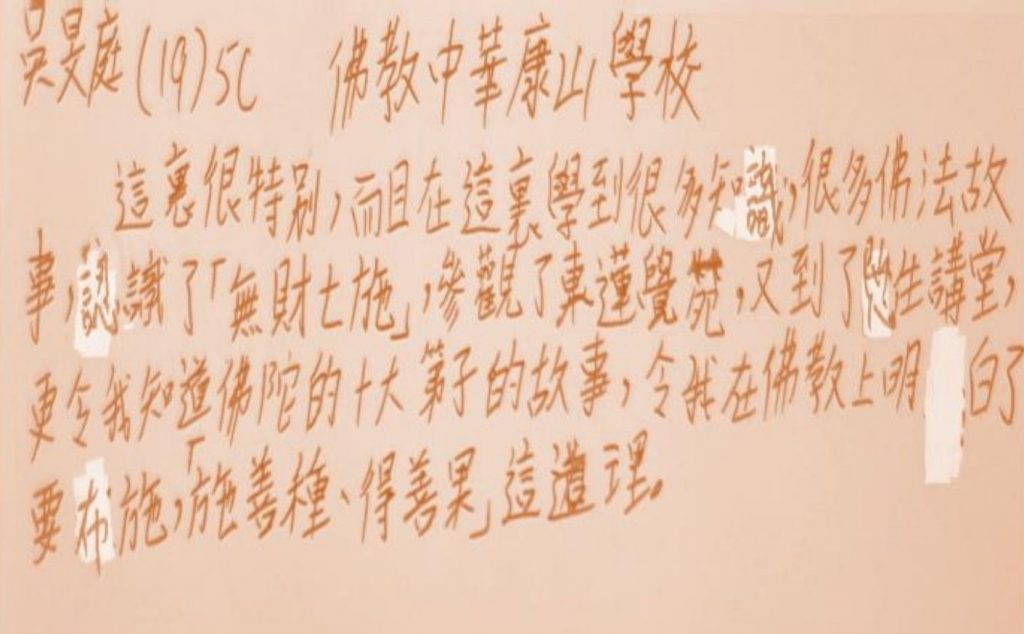 吳旻庭(19)5C 佛教中華康山學校
這裏很特別,而且在這裏學到很多知識,很多佛法故
事,認識了「無財七施」,參觀了東蓮覺苑,又到了愍生講堂,
更令我知道佛陀的十大第子的故事,令我在佛教上明白了
要布施,「施善種、得善果」這道理。